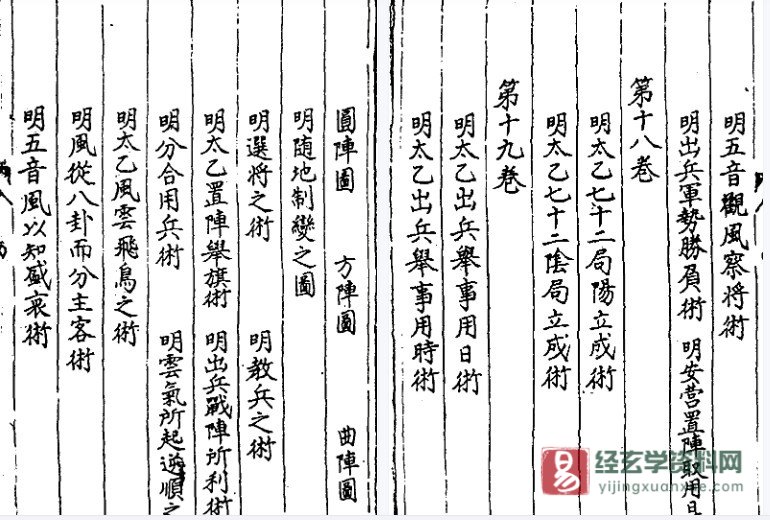 明五音觀風察将術
明出兵軍勢勝負術　明安营置陣取用日
第十八巻
明太乙七十二局陽立成術
明太乙七十二陰局立成術
第十九巻
明太乙出兵舉事用日術
明太乙出兵舉事用時術
圓陣圖　方陣圖　曲陣圖
明随地制變之圖
明選将之術　明教兵之術
明太乙置陣舉旗術　明出兵戰陣所利術
明分合用兵術　明雲氣所起逆順之
明太乙風雲飛鳥之術
明風從八卦而分主客術
明五音風以知盛衰術
易 经玄学资料网
yijingxuanxue.com